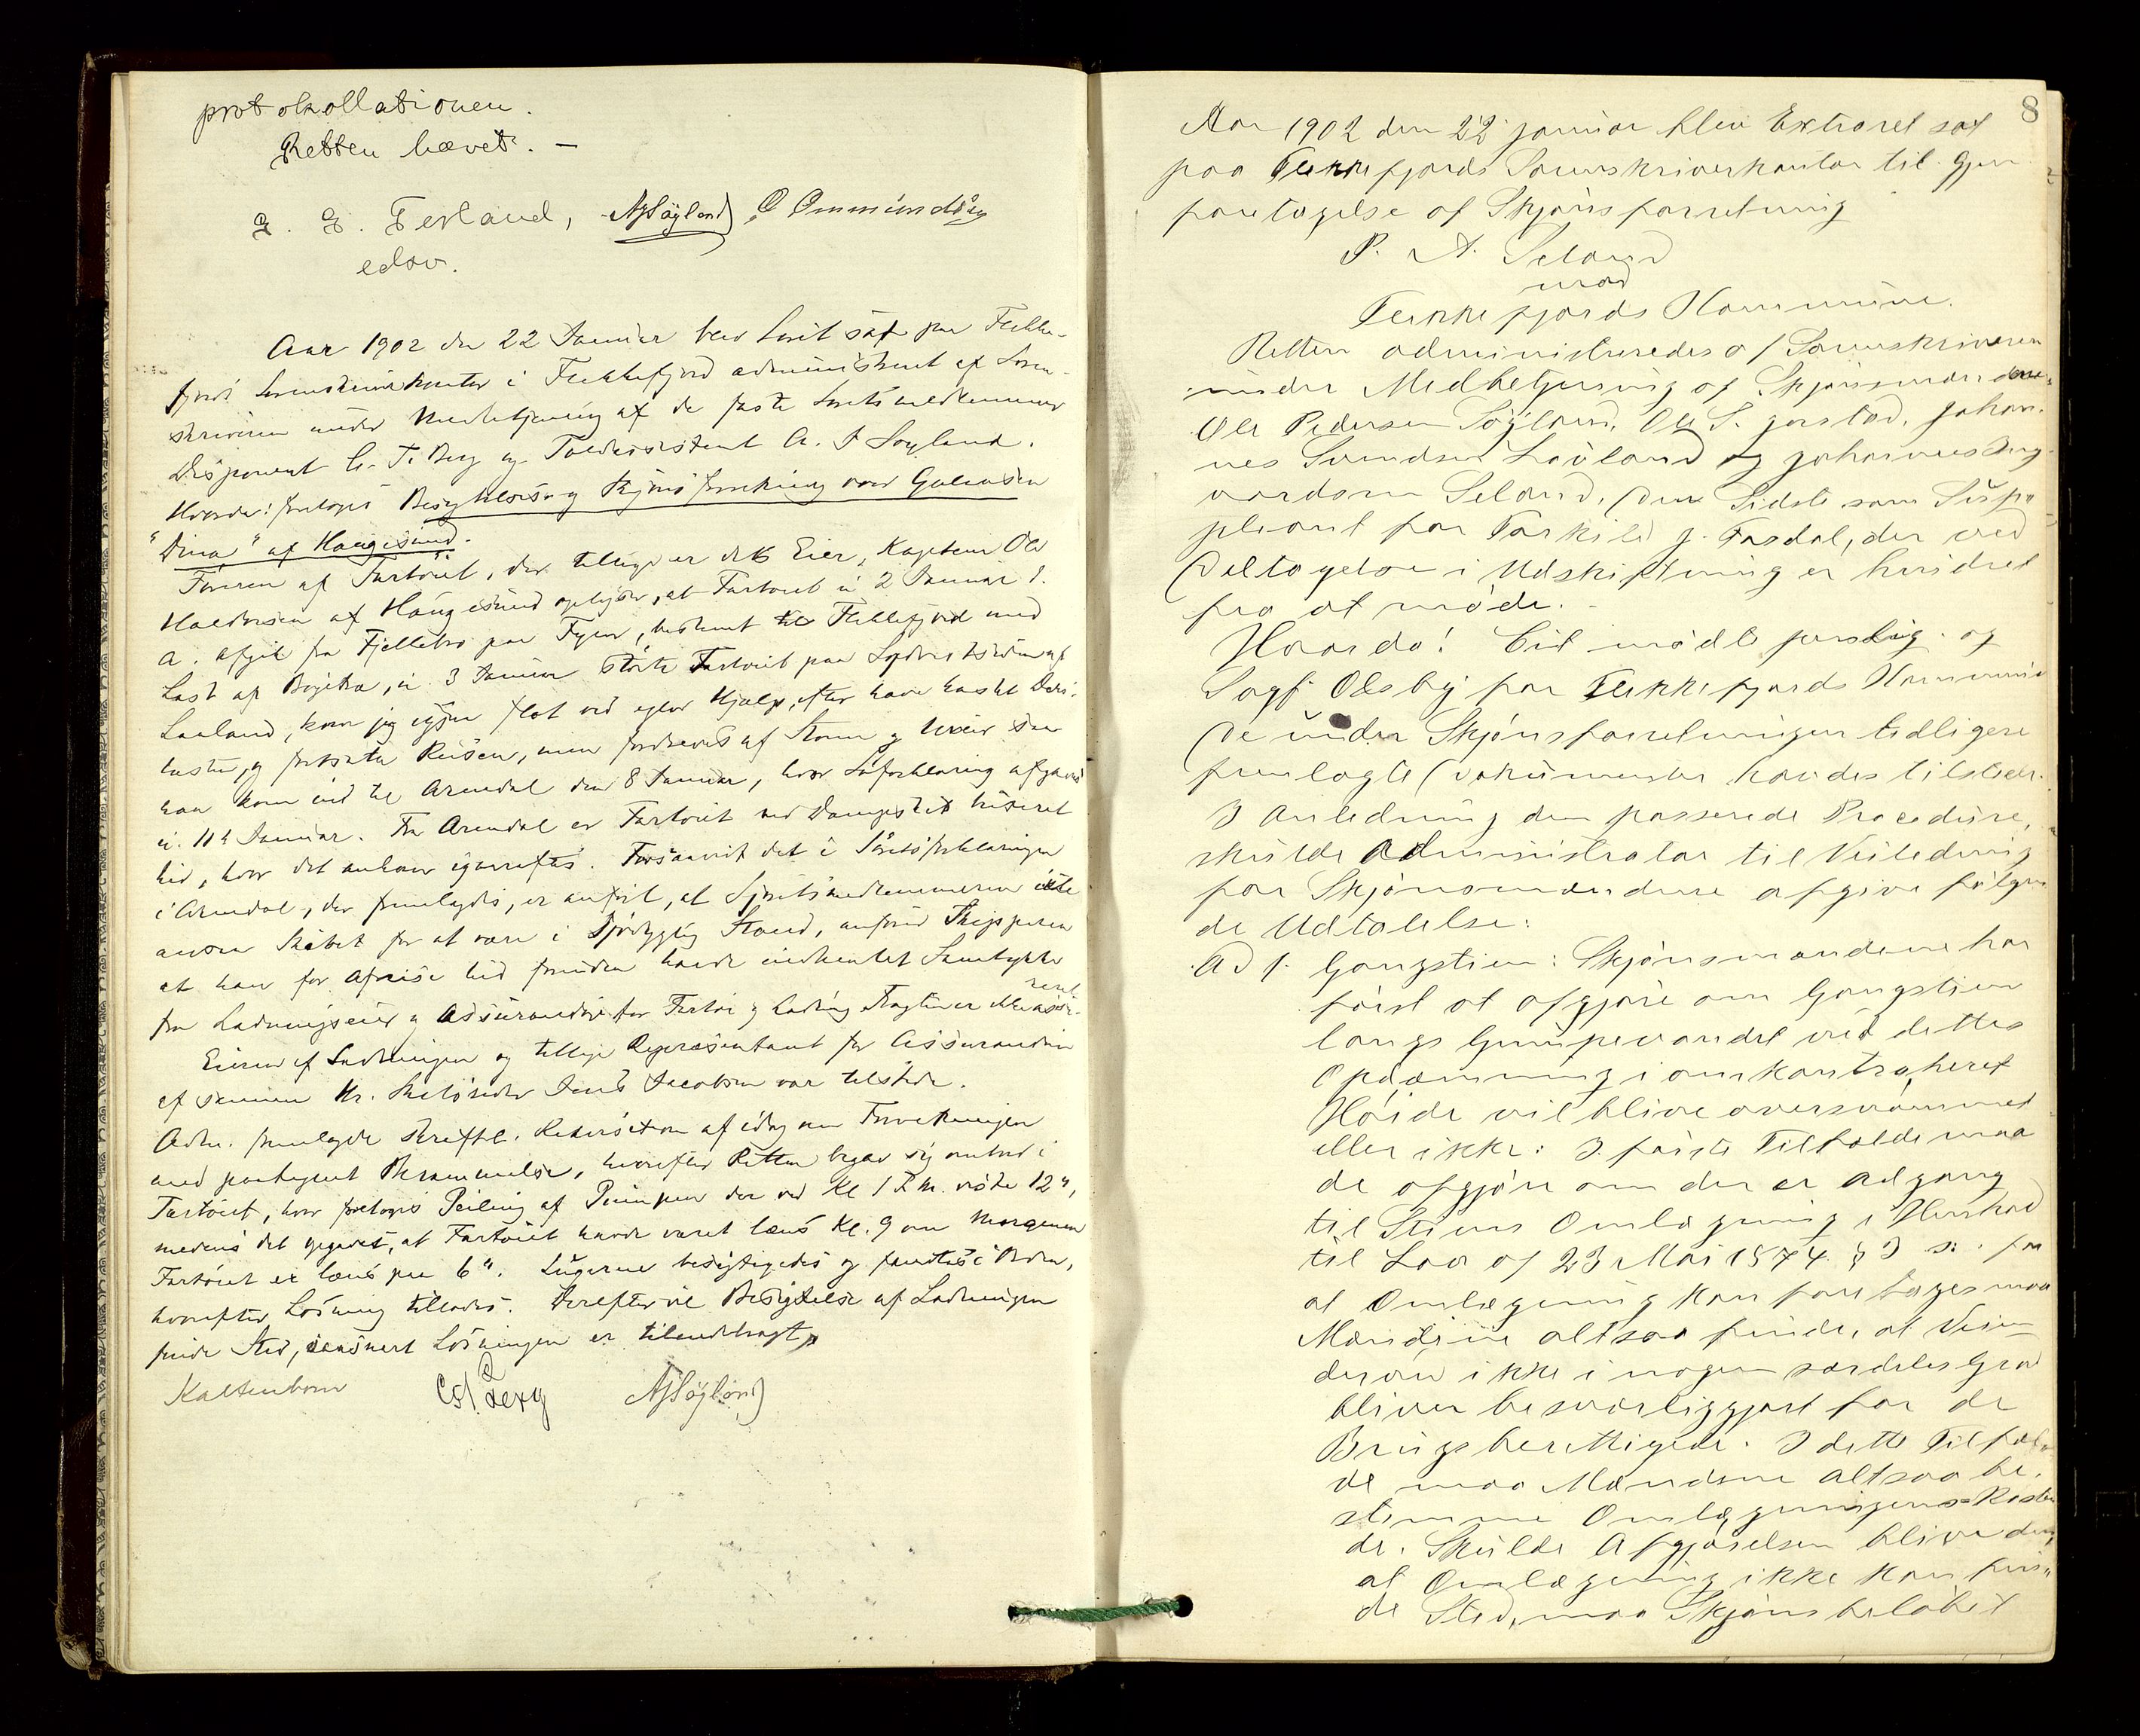 protokollationen.
Retten hævet. —
G. G. Fevland, AJSøyland O Ommundsen
edsv.
Aar 1902 den 22 Januar blev Søret sat paa Flekke-
fjords Sorenskriverkontor i Flekkefjord administreret af Soren-
skriveren under Medbetjening af de faste Søretsmedlemmer
Disponent C. T. Berg og Toldassistent A. J Søyland.
Hvorda: foretoges Besigtelses og Skjønsforretning over Galeasen
"Dina" af Haugesund.
Føreren af Fartøiet, der tillige er dets Eier, Kaptein Ole
Haldorsen af Haugesund oplyser, at Fartøiet i 2 Januar d.
A. afgik fra Fjellebro paa Fyen, bestemt til Flekkefjord med
Last af Boghvede, i 3 Januar stødte Fartøiet paa Sydvestsiden af
Laaland, kom jeg igjen flot ved egen Hjælp, efter have kastet Deks-
lasten, og fortsatte Reisen, men fordreves af Storm og Uveir saa
han kom ind til Arendal den 8 Januar, hvor Søforklaring afgaves
i. 11te Januar. Fra Arendal er Fartøiet ved Dampskib bugseret
hid, hvor det ankom igaaraftes. Forsaavidt det i Søretsforklaringen
i Arendal, der fremlagdes, er anført, at Søretsmedlemmerne ikke
anser Skibet for at være i sjødygtig Stand, anfører Skipperen
at han før Afreise hid forinden havde indhentet Samtykke
fra Ladningseier og Assurandører for Fartøi og Ladning Fragten er ikke assu-
reret
Eieren af Ladningen og tillige Repræsentant for Assurandøren
af samme Hr. Skibsreder Jens Jacobsen var tilstede.
Adm. fremlagde skriftl. Rekvisition af idag om Forretningen
med paategnet Berammelse, hvorefter Retten begav sig ombord i
Fartøiet, hvor foretoges Peiling af Pumpen der ved Kl 1 F.M. viste 12",
medens det opgaves, at Fartøiet havde været læns Kl. 9 om Morgenen
Fartøiet er læns paa 6". Lugerne besigtigedes og fandtes i Orden,
hvorefter Losning tillodes. Derefter vil Besigtelse af Ladningen
finde Sted, saasnart Losningen er tilendebragt
Kaltenborn CT Berg AJSøyland
8
Aar 1902 den 22 januar blev Extraret sat
paa Flekkefjords Sorenskriverkontor til Gjen
foretagelse af Skjønsforretning
P. A. Seland
mod
Flekkefjords Kommune.
Retten administreredes af Sorenskriveren
under Medbetjening af Skjønsmændene
Ole Pedersen Søyland, Ole S. Jerstad, Johan-
nes Svendsen Lavland og Johannes Ing-
vardsen Seland, den Sidste som Sup-
pleant for Torkild J. Fosdal, der ved
Deltagelse i Udskiftning er hindret
fra at møde. -
Hvorda! Cit mødte personlig. og
Sagf. Olsby for Flekkefjords Kommune
De under Skjønsforretningen tidligere
fremlagte Dokumenter havdes tilstede.
I Anledning den passerede Procedure,
skulde Administrator til Veiledning
for Skjønsmændene afgive følgen
de Udtalelse:
Ad 1. Gangstien: Skjønsmændene har
først at afgjøre om Gangstien
langs Grumpevandet ved dettes
Opdæmning i omkontraheret
Høide vil blive oversvømmet
eller ikke: I første Tilfælde maa
de afgjøre om der er Adgang
til Stiens Omlægning i Henhold
til Lov af 23 Mai 1874 § 3 s: for
at Omlægning kan foretages maa
Mændene altsaa finde, at Veien
derved ikke i nogen særdeles Grad
bliver besværliggjort for de
Brugsberettigede. I dette Tilfæl
de maa Mændene altsaa be-
stemme Omlægningens Kosten
de. Skulde Afgjørelsen blive den,
at Omlægning ikke kan fin-
de Sted, maa Skjønsbeløbet